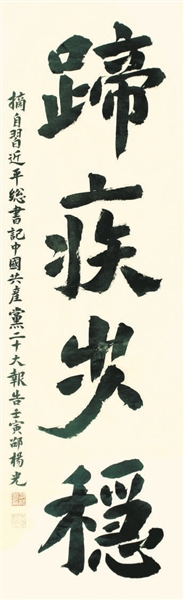 蹄疾步穩
摘自習近平總書記中國共產黨二十大報告壬寅邵楊光